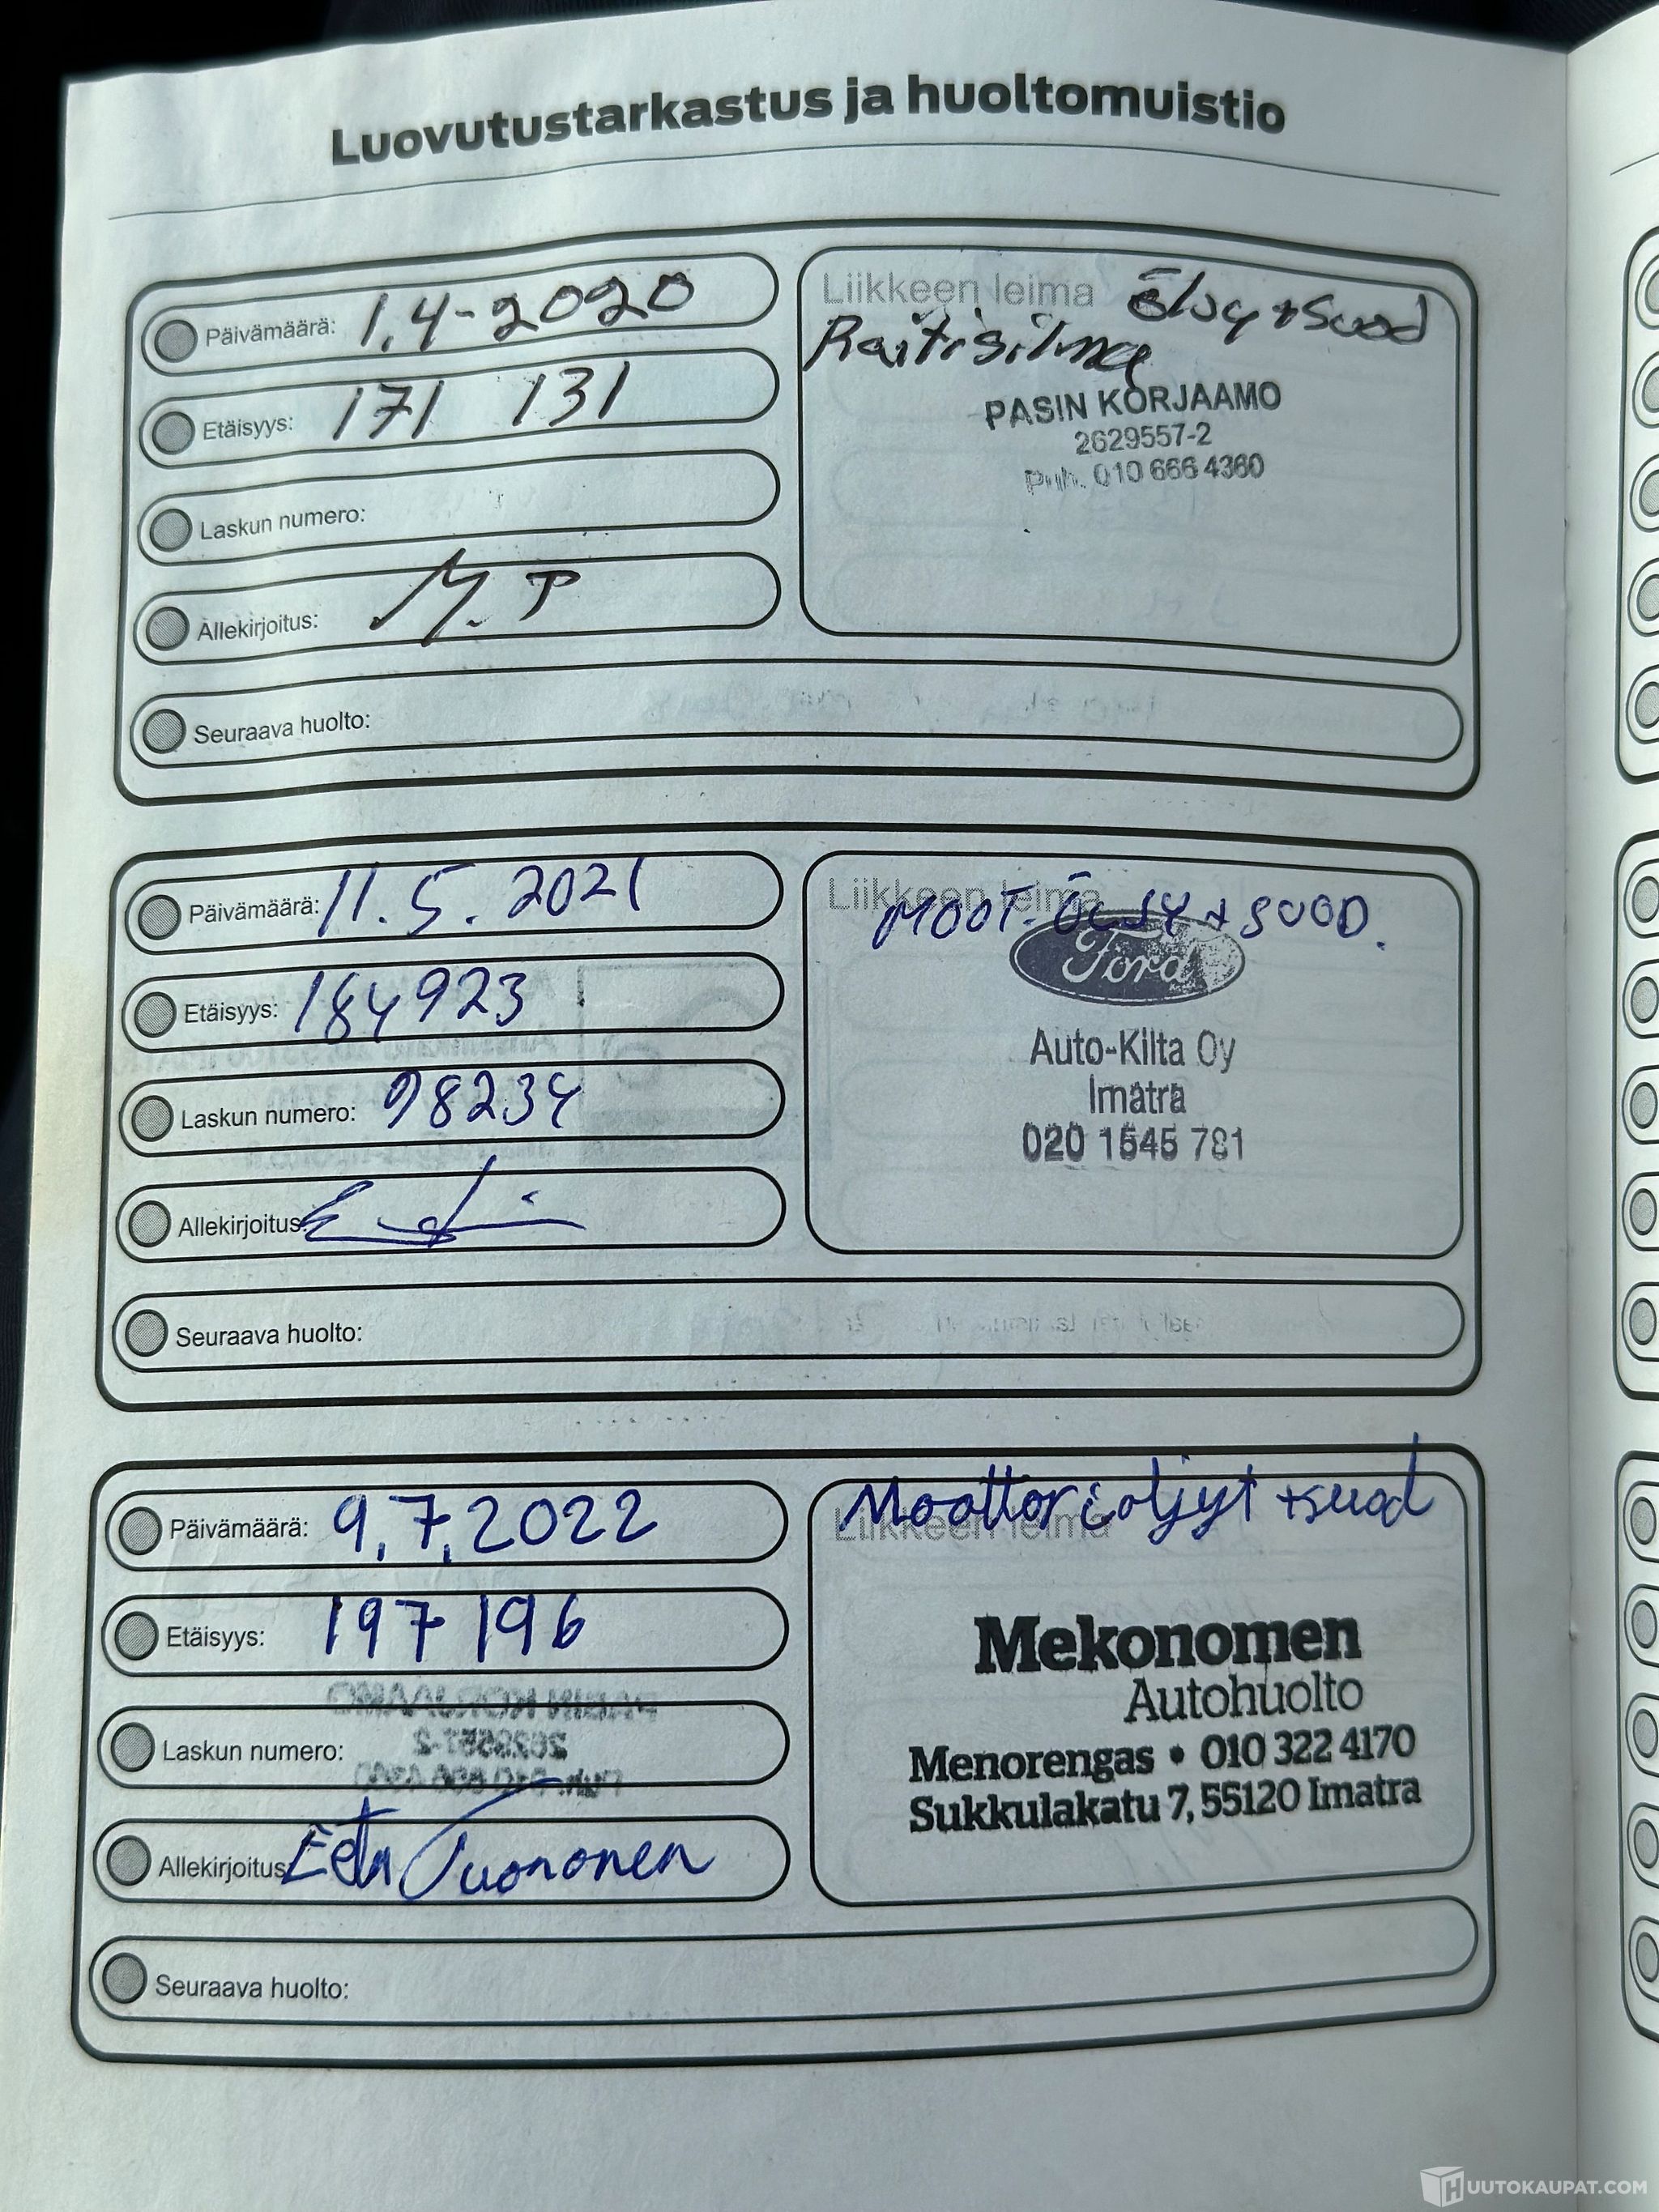 Luovutustarkastus ja huoltomuistio
Päivämäärä: 1.4-2020
Etäisyys: 171 131
Laskun numero:
Allekirjoitus: M.P
Liikkeen leima Öljy + Suod
Raitisilma
PASIN KORJAAMO
2629557-2
Puh. 010 666 4360
Seuraava huolto:
Päivämäärä: 11.5.2021
Etäisyys: 184923
Laskun numero: 98234
Allekirjoitus:
Liikkeen leima
MOOT. ÖLJY + SUOD.
Ford
Auto-Kilta Oy
Imatra
020 1545 781
Seuraava huolto:
Päivämäärä: 9.7.2022
Etäisyys: 197 196
Laskun numero:
Allekirjoitus: Eetu Tuononen
Moottoriöljyt + suod
Liikkeen leima
Mekonomen
Autohuolto
Menorengas • 010 322 4170
Sukkulakatu 7, 55120 Imatra
Seuraava huolto:
HUUTOKAUPAT.COM